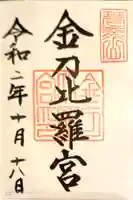 金刀比羅宮
令和二年十月十八日